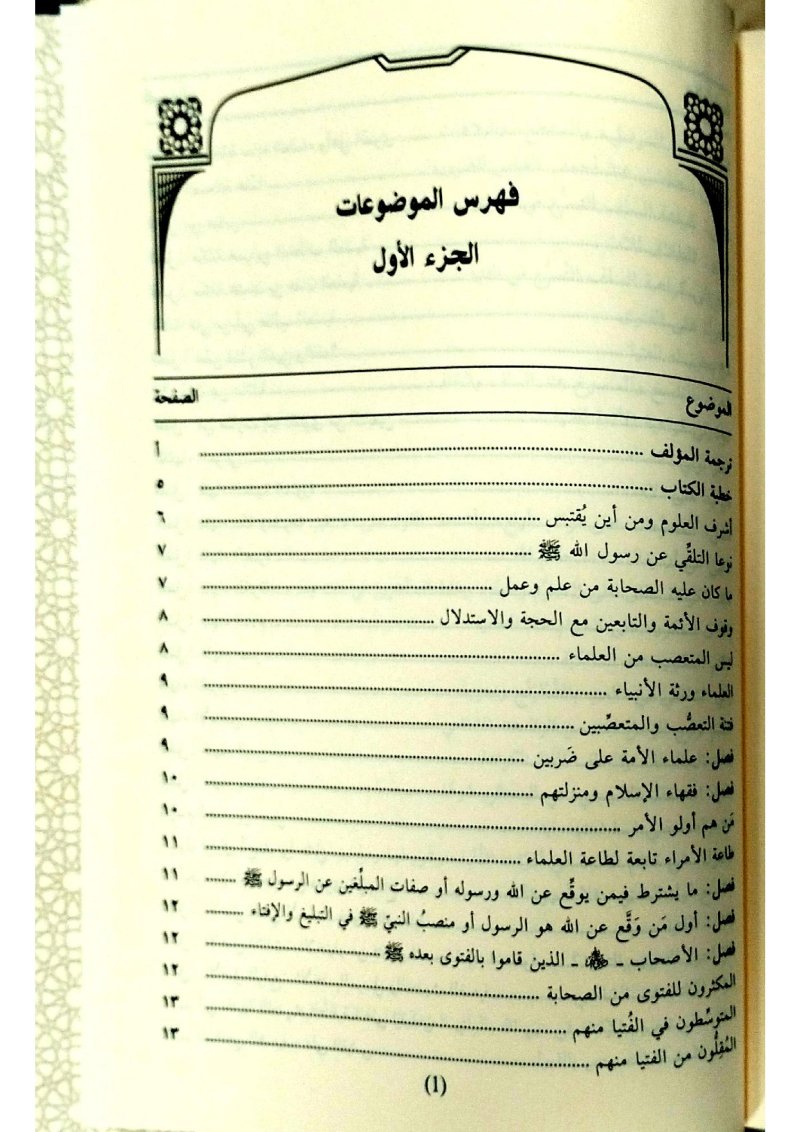 فهرس الموضوعات
الجزء الأول
الموضوع الصفحة
ترجمة المؤلف ........ أ
خطبة الكتاب ........ ٥
أشرف العلوم ومن أين يُقتبس ........ ٦
نوعا التلقِّي عن رسول الله ﷺ ........ ٧
ما كان عليه الصحابة من علم وعمل ........ ٧
وقوف الأئمة والتابعين مع الحجة والاستدلال ........ ٨
ليس المتعصب من العلماء ........ ٨
العلماء ورثة الأنبياء ........ ٩
فتة التعصُّب والمتعصِّبين ........ ٩
فصل: علماء الأمة على ضَربين ........ ٩
فصل: فقهاء الإسلام ومنزلتهم ........ ١٠
مَن هم أولو الأمر ........ ١٠
طاعة الأمراء تابعة لطاعة العلماء ........ ١١
فصل: ما يشترط فيمن يوقِّع عن الله ورسوله أو صفات المبلِّغين عن الرسول ﷺ ........ ١١
فصل: أول مَن وَقَّع عن الله هو الرسول أو منصبُ النبيّ ﷺ في التبليغ والإفتاء ........ ١٢
فصل: الأصحاب ـ ـ الذين قاموا بالفتوى بعده ﷺ ........ ١٢
المكثرون للفتوى من الصحابة ........ ١٢
المتوسِّطون في الفُتيا منهم ........ ١٣
المُقِلُّون من الفتيا منهم ........ ١٣
(1)